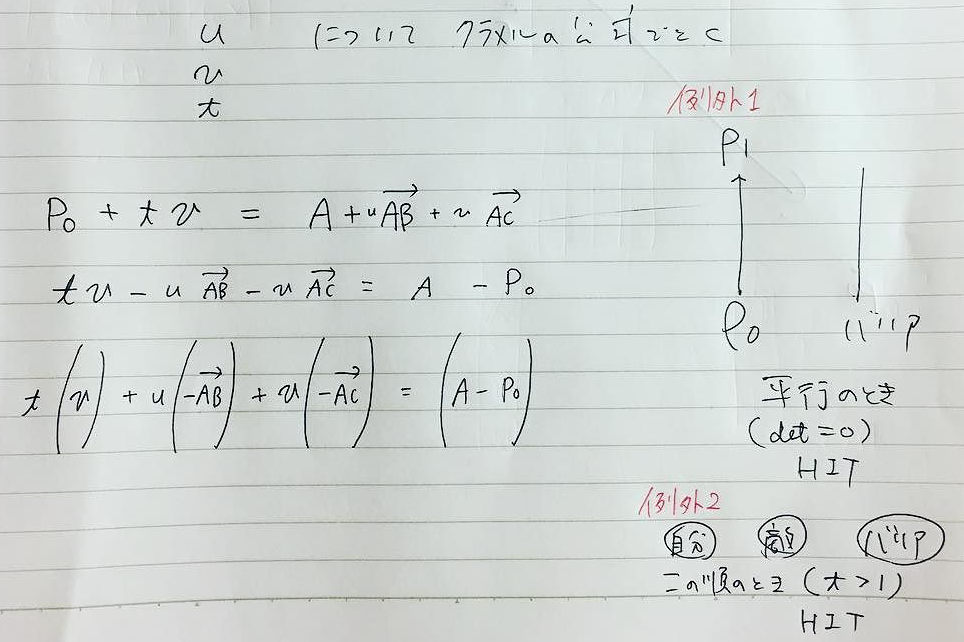 u について クラメルの公式でとく
v
t
P₀ + t v = A + u AB→ + v AC→
t v − u AB→ − v AC→ = A − P₀
t (v) + u (−AB→) + v (−AC→) = (A − P₀)
例外1
P1
P₀ バリア
平行のとき
(det = 0)
HIT
例外2
自分 敵 バリア
この順のとき (t > 1)
HIT